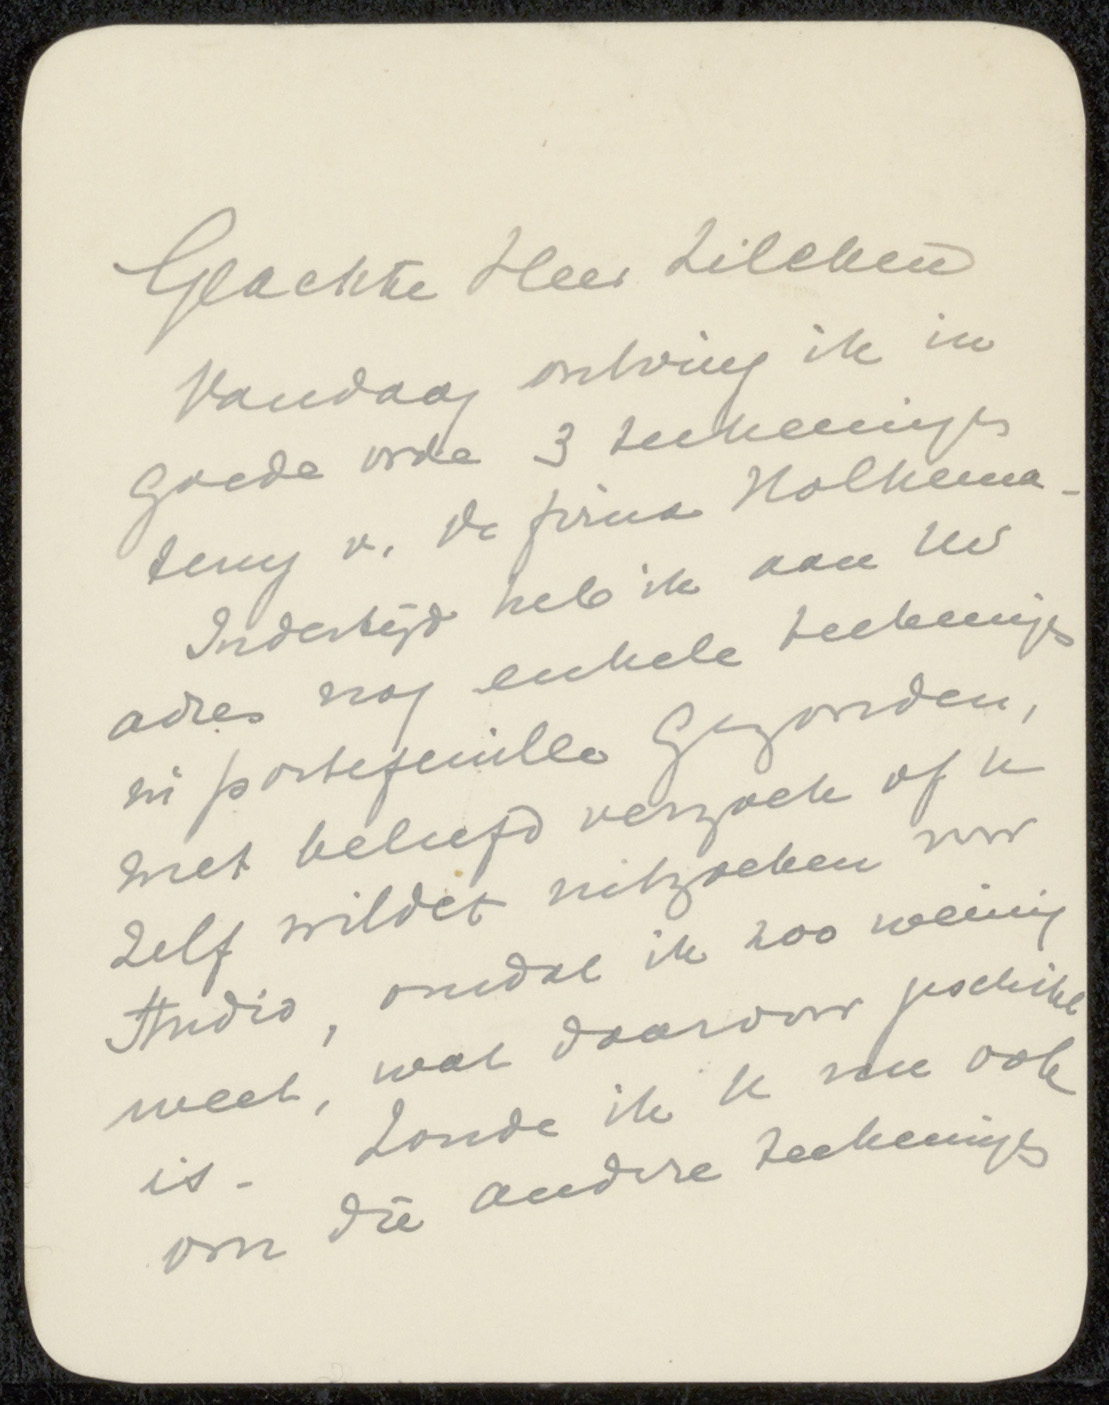 Geachte Heer Zilcken
Vandaag ontving ik in
goede orde 3 teekeningen
terug v. de firma Holkema -
Indertijd heb ik aan Uw
adres nog enkele teekeningen
in portefeuille gezonden,
met beleefd verzoek of U
zelf wildet uitzoeken voor
Studio, omdat ik zoo weinig
weet, wat daarvoor geschikt
is - Zoude ik U nu ook
om die andere teekeningen